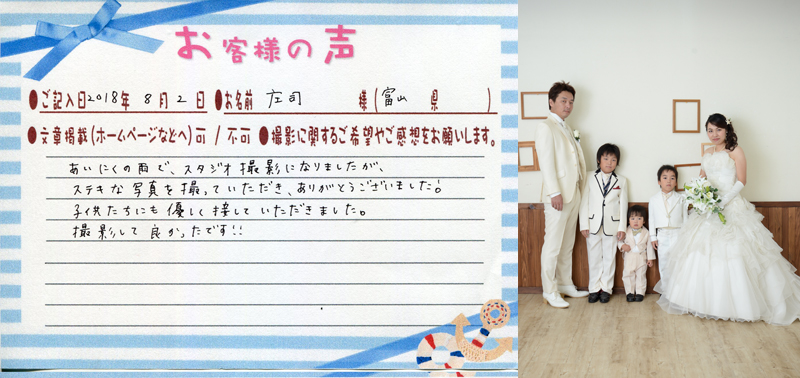 お客様の声
●ご記入日2018年 8月 2日 ●お名前 庄司 様(富山 県 )
●文章掲載(ホームページなどへ)可 / 不可 ●撮影に関するご希望やご感想をお願いします。
あいにくの雨で、スタジオ撮影になりましたが、
ステキな写真を撮っていただき、ありがとうございました!
子供たちにも優しく接していただきました。
撮影して良かったです!!